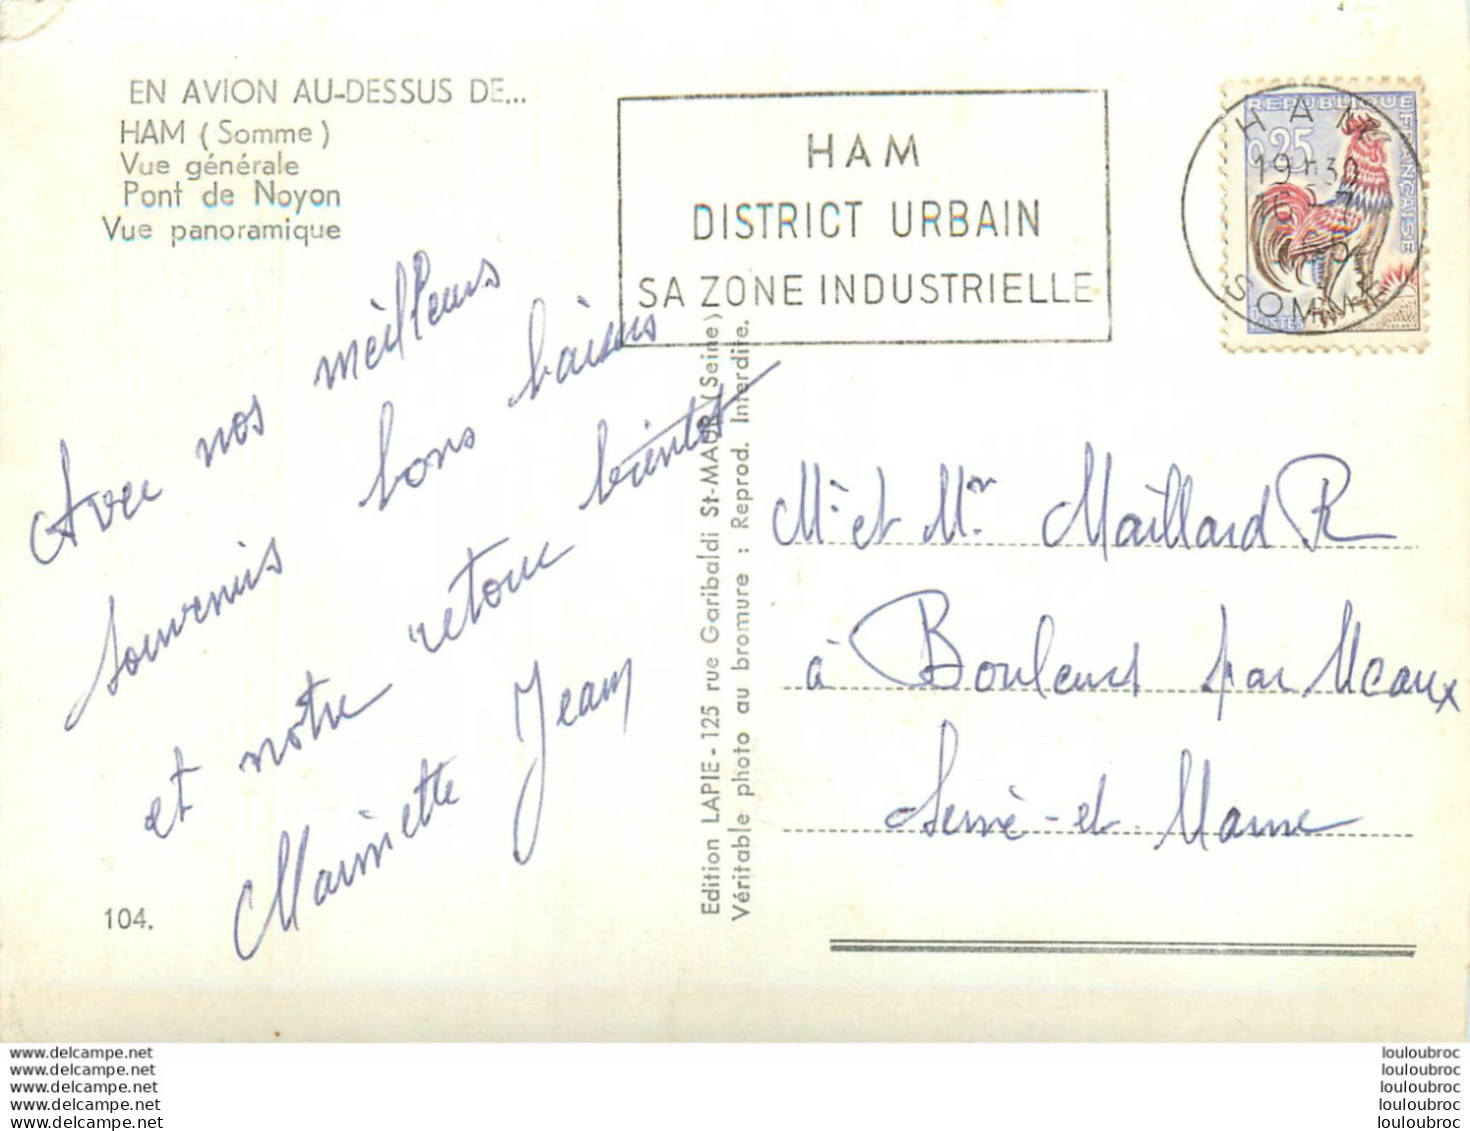 EN AVION AU-DESSUS DE...
HAM (Somme)
Vue générale
Pont de Noyon
Vue panoramique
HAM
DISTRICT URBAIN
SA ZONE INDUSTRIELLE
REPUBLIQUE FRANÇAISE
0,25
POSTES
HAM
19H30
SOMME
Avec nos meilleurs
souvenirs bons baisers
et notre retour bientot
Marinette Jean
104.
Edition LAPIE - 125 rue Garibaldi St-MAUR (Seine)
Véritable photo au bromure : Reprod. Interdite.
Mr et Mr Maillard R
à Bouleurs par Meaux
Seine-et-Marne
www.delcampe.net
www.delcampe.net
www.delcampe.net
www.delcampe.net
www.delcampe.net
louloubroc
louloubroc
louloubroc
louloubroc
louloubroc